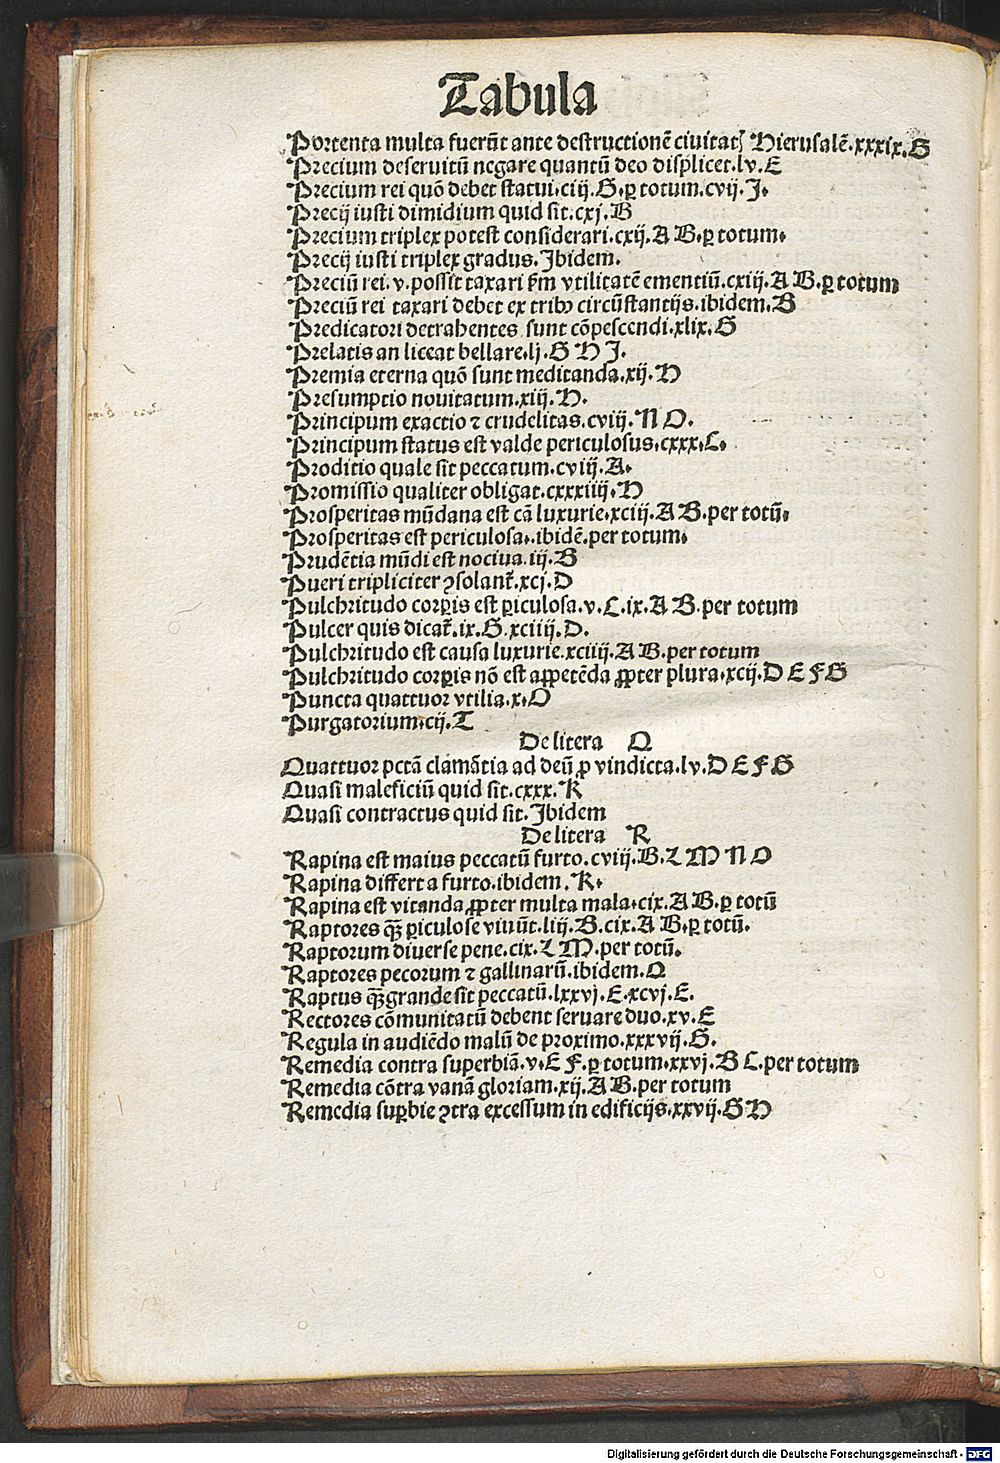 Tabula
Portenta multa fuerūt ante destructionē ciuitatꝭ Hierusalē.xxxix.G
Precium deseruitū negare quantū deo displicet.lv.E
Precium rei quō debet statui.ciij.G.ꝑ totum.cvij.J.
Precij iusti dimidium quid sit.cxj.B
Precium triplex potest considerari.cxij.A B.ꝑ totum.
Precij iusti triplex gradus.Jbidem.
Preciū rei.v.possit taxari ẜm vtilitatē ementiū.cxiij.A B.ꝑ totum
Preciū rei taxari debet ex tribꝰ circūstantijs.ibidem.B
Predicatori detrahentes sunt cōpescendi.xlix.G
Prelatis an liceat bellare.lj.G H J.
Premia eterna quō sunt meditanda.xij.H
Presumptio nouitatum.xiij.H.
Principum exactio ⁊ crudelitas.cviij.N O.
Principum status est valde periculosus.cxxx.C.
Proditio quale sit peccatum.cviij.A.
Promissio qualiter obligat.cxxxiiij.H
Prosperitas mūdana est cā luxurie.xciij.A B.per totū.
Prosperitas est periculosa..ibidē.per totum.
Prudētia mūdi est nociua.iij.B
Pueri tripliciter ꝯsolant᷑.xcj.D
Pulchritudo corꝑis est ꝑiculosa.v.C.ix.A B.per totum
Pulcer quis dicat᷑.ix.G.xciiij.D.
Pulchritudo est causa luxurie.xciiij.A B.per totum
Pulchritudo corꝑis nō est aꝓetēda ꝓpter plura.xcij.D E F G
Puncta quattuor vtilia.x.O
Purgatorium.cij.T
De litera Q
Quattuor pctā clamātia ad deū ꝓ vindicta.lv.D E F G
Quasi maleficiū quid sit.cxxx.K
Quasi contractus quid sit.Jbidem
De litera R
Rapina est maius peccatū furto.cviij.B.L M N O
Rapina differt a furto.ibidem.K.
Rapina est vitanda ꝓpter multa mala.cix.A B.ꝑ totū
Raptores qꝫ̄ ꝑiculose viuūt.liij.B.cix.A B.ꝑ totū.
Raptorum diuerse pene.cix.L M.per totū.
Raptores pecorum ⁊ gallinarū.ibidem.Q
Raptus qꝫ̄ grande sit peccatū.lxxvj.E.xcvj.E.
Rectores cōmunitatū debent seruare duo.xv.E
Regula in audiēdo malū de proximo.xxxvij.G.
Remedia contra superbiā.v.E F.ꝑ totum.xxvj.B C.per totum
Remedia cōtra vanā gloriam.xij.A B.per totum
Remedia suꝑbie ꝯtra excessum in edificijs.xxvij.G H
Digitalisierung gefördert durch die Deutsche Forschungsgemeinschaft - DFG